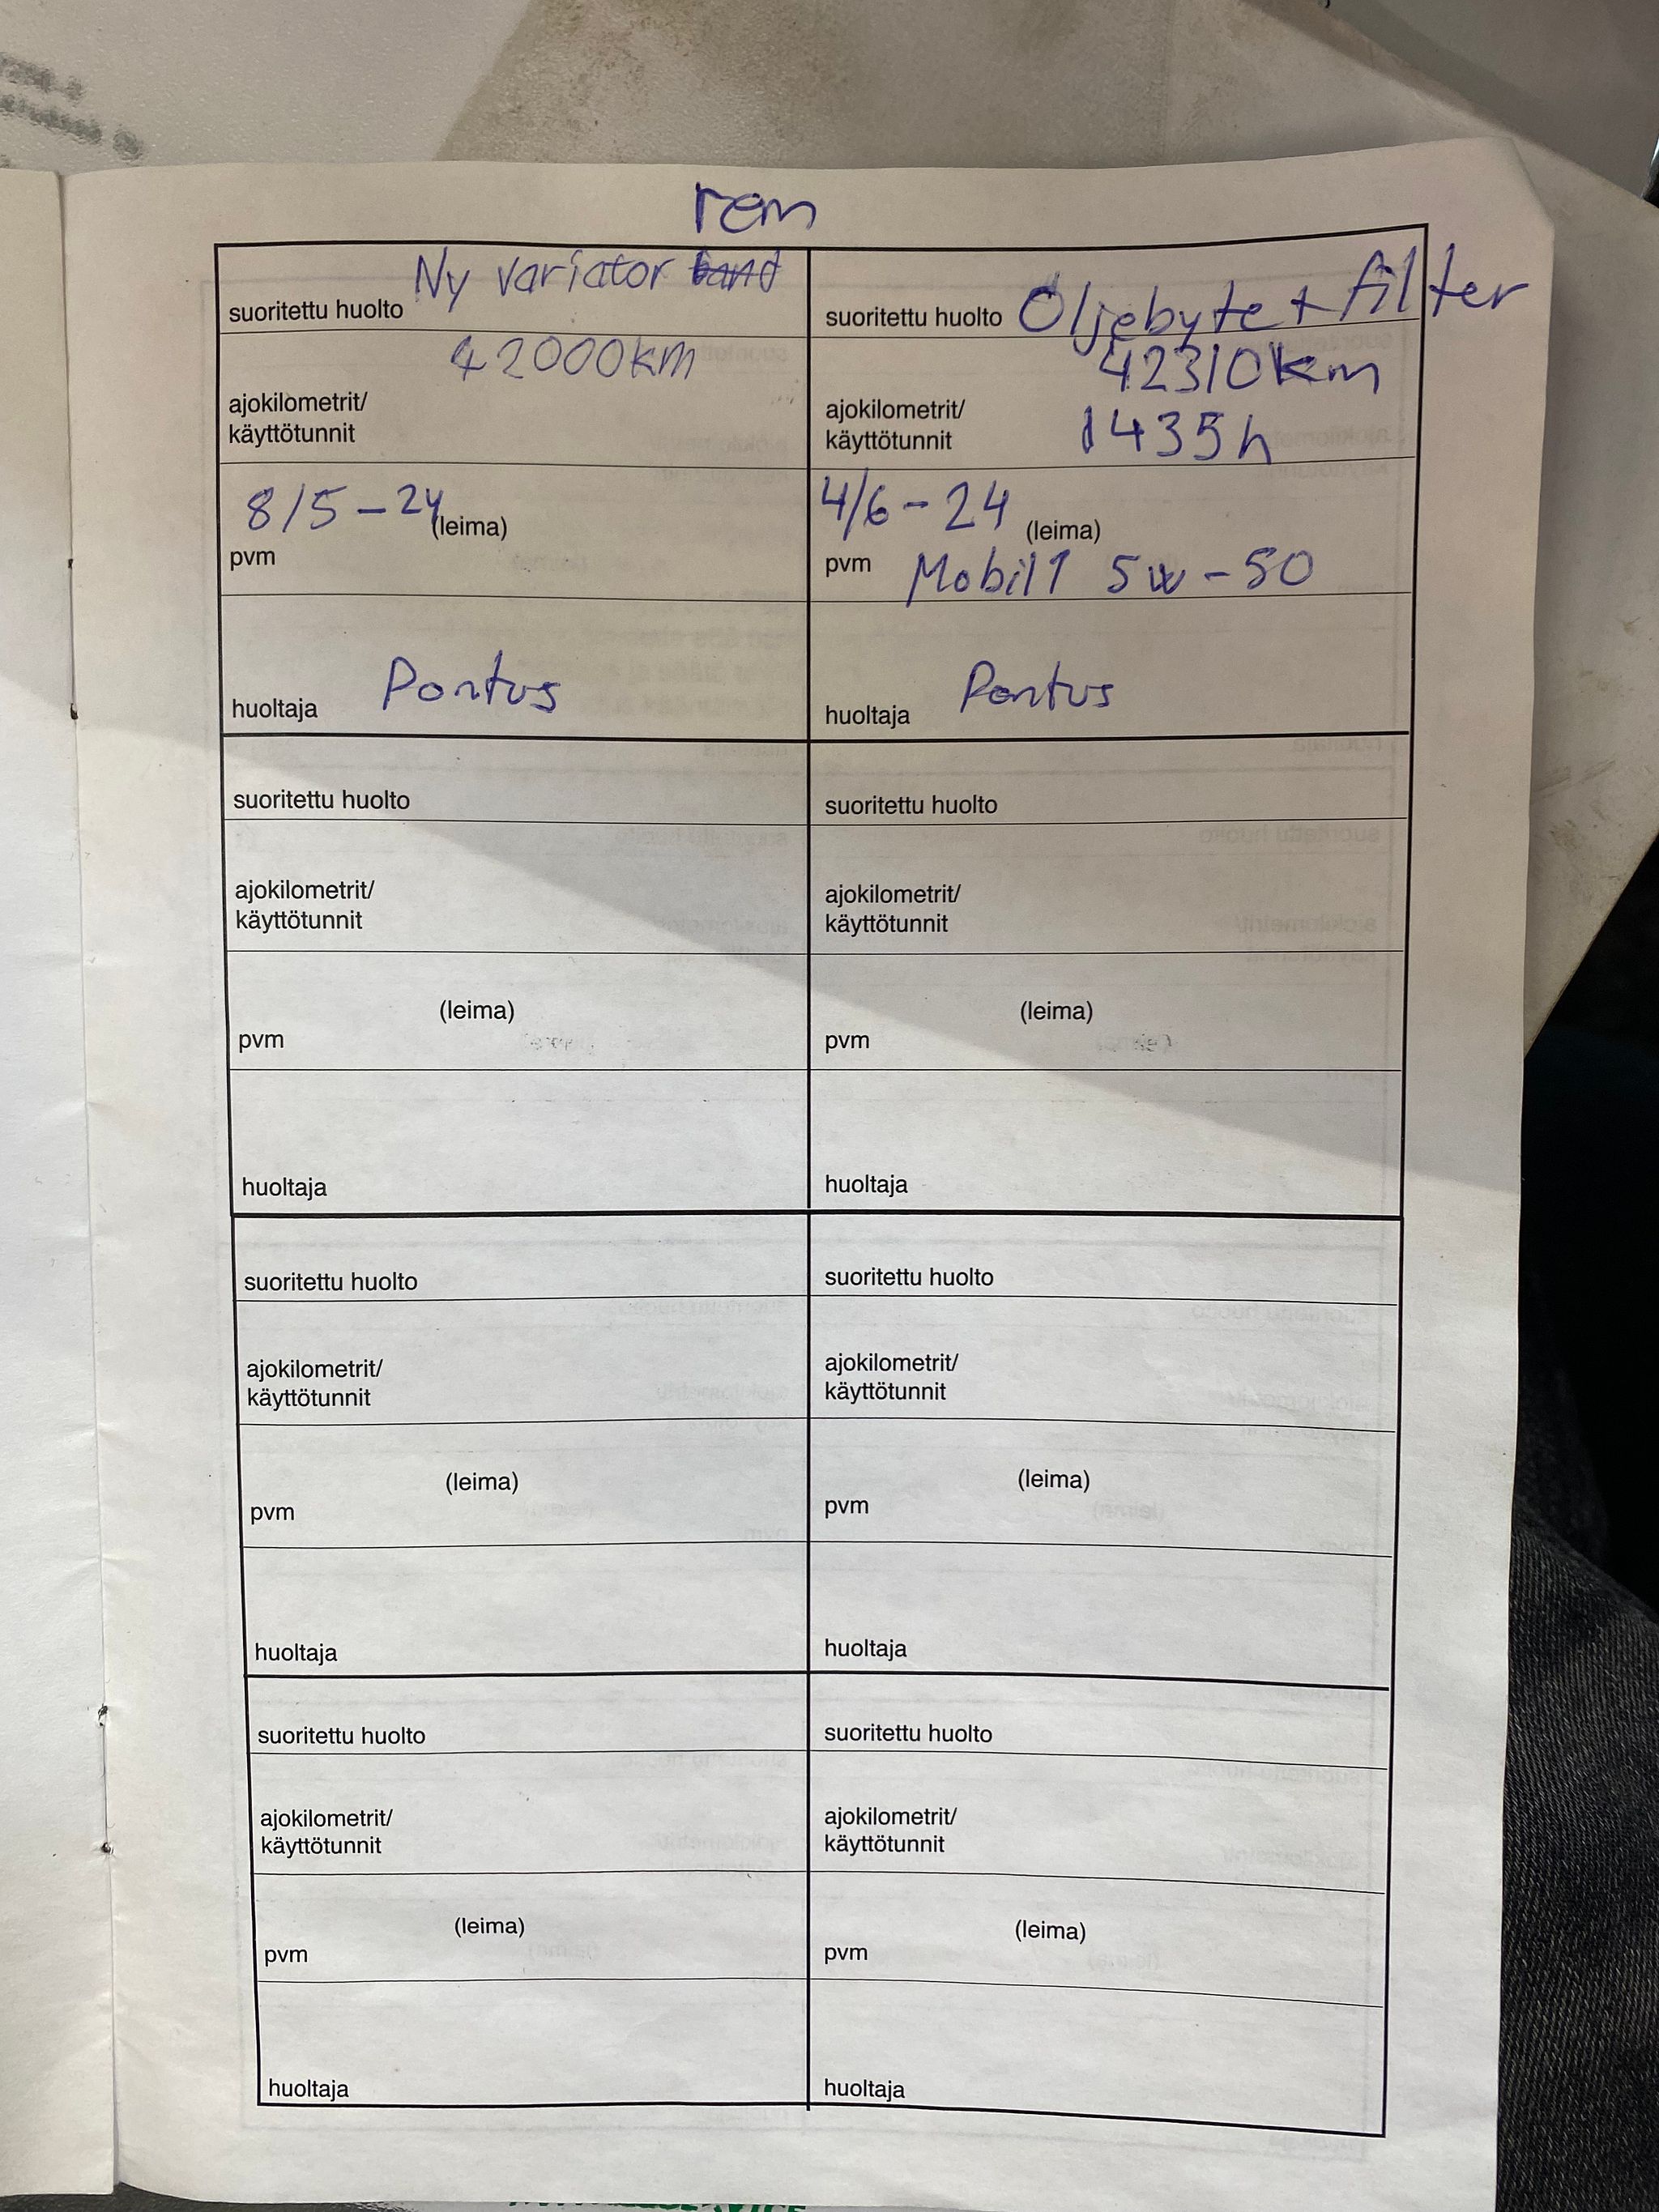 rem
Ny variator band
suoritettu huolto
42000km
ajokilometrit/
käyttötunnit
8/5-24
(leima)
pvm
huoltaja Pontus
suoritettu huolto Oljebyte + filter
42310km
ajokilometrit/
käyttötunnit 1435h
4/6-24
(leima)
pvm Mobil 1 5w-50
huoltaja Pontus
suoritettu huolto
ajokilometrit/
käyttötunnit
(leima)
pvm
huoltaja
suoritettu huolto
ajokilometrit/
käyttötunnit
(leima)
pvm
huoltaja
suoritettu huolto
ajokilometrit/
käyttötunnit
(leima)
pvm
huoltaja
suoritettu huolto
ajokilometrit/
käyttötunnit
(leima)
pvm
huoltaja
suoritettu huolto
ajokilometrit/
käyttötunnit
(leima)
pvm
huoltaja
suoritettu huolto
ajokilometrit/
käyttötunnit
(leima)
pvm
huoltaja